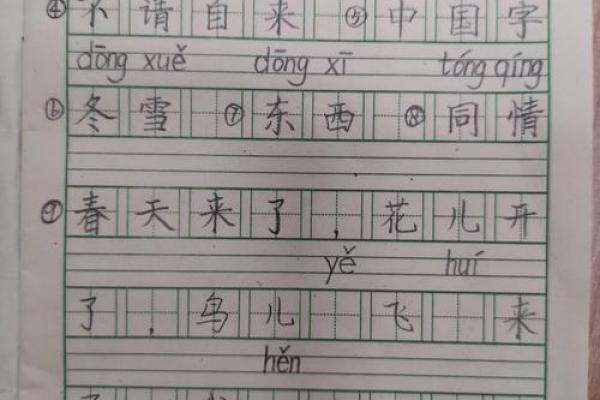 ④ 不请自来 ⑤ 中国字
dōng xuě dōng xī tóng qíng
⑥ 冬雪 ⑦ 东西 ⑧ 同情
⑨ 春天来了，花儿开
yě huí
了，鸟儿 飞 来
hěn
了